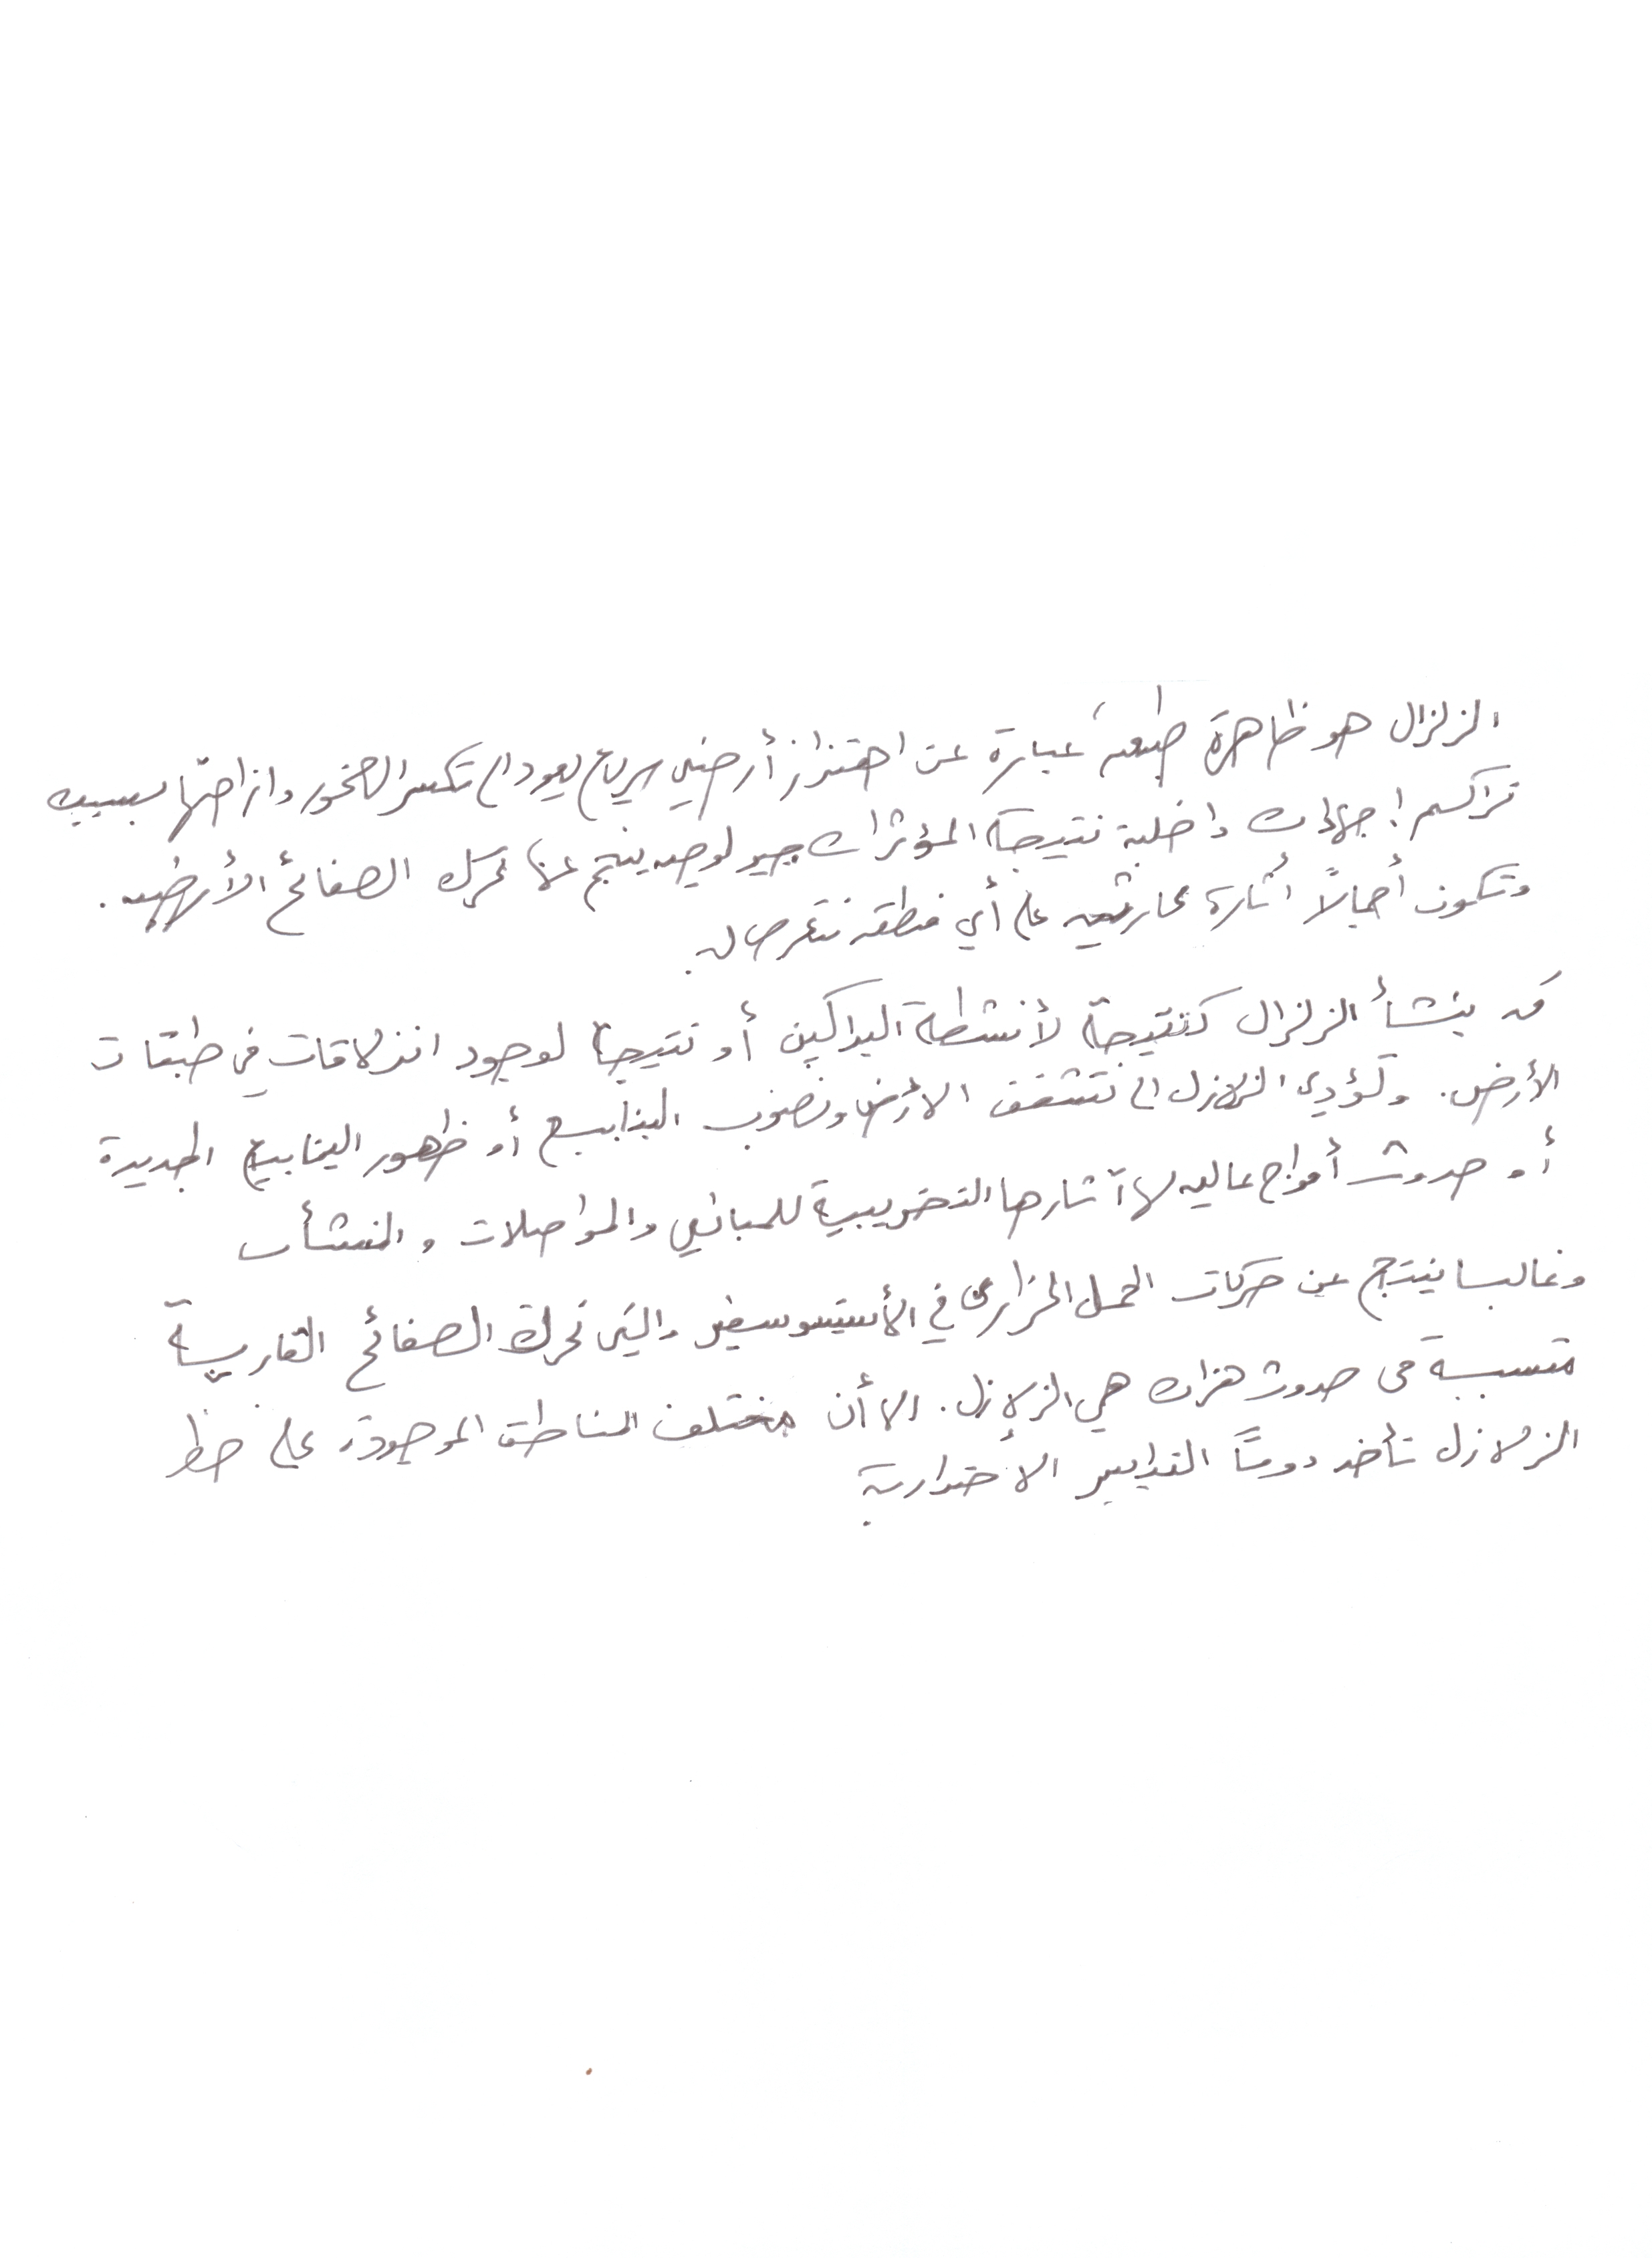 الزلزال هو ظاهرة طبعية عبارة عن اهتزاز أرضي سريع يعود الى تكسر الصخور وازاحتها بسبب
تراكم اجهادات داخلية نتيجة المؤثرات جيولوجيه ينتج عنها تحرك الصفائح الأرضيه.
وتكون أجمالاً أثاره كارثيه على أي منطقه تتعرض له.
قد ينشأ الزلزال كنتيجة لأنشطة البراكين أو نتيجة لوجود انزلاقات في طبقات
الأرض. وتؤدي الزلازل الى تشقق الأرض ونضوب الينابيع أو ظهور الينابيع الجديدة
أو حدوث أمواج عاليه لها آثارها التخريبية للمباني والمواصلات والمنشأت
وغالبا ينتج عن حركات الحمل الحراري في الأستينوسفير والتي تحرك الصفائح القارية
متسببة في حدوث هزات هي الزلازل. الا أن مختلف المناطق الموجودة على خط
الزلازل تأخد دوماً التدابير الأحترازية